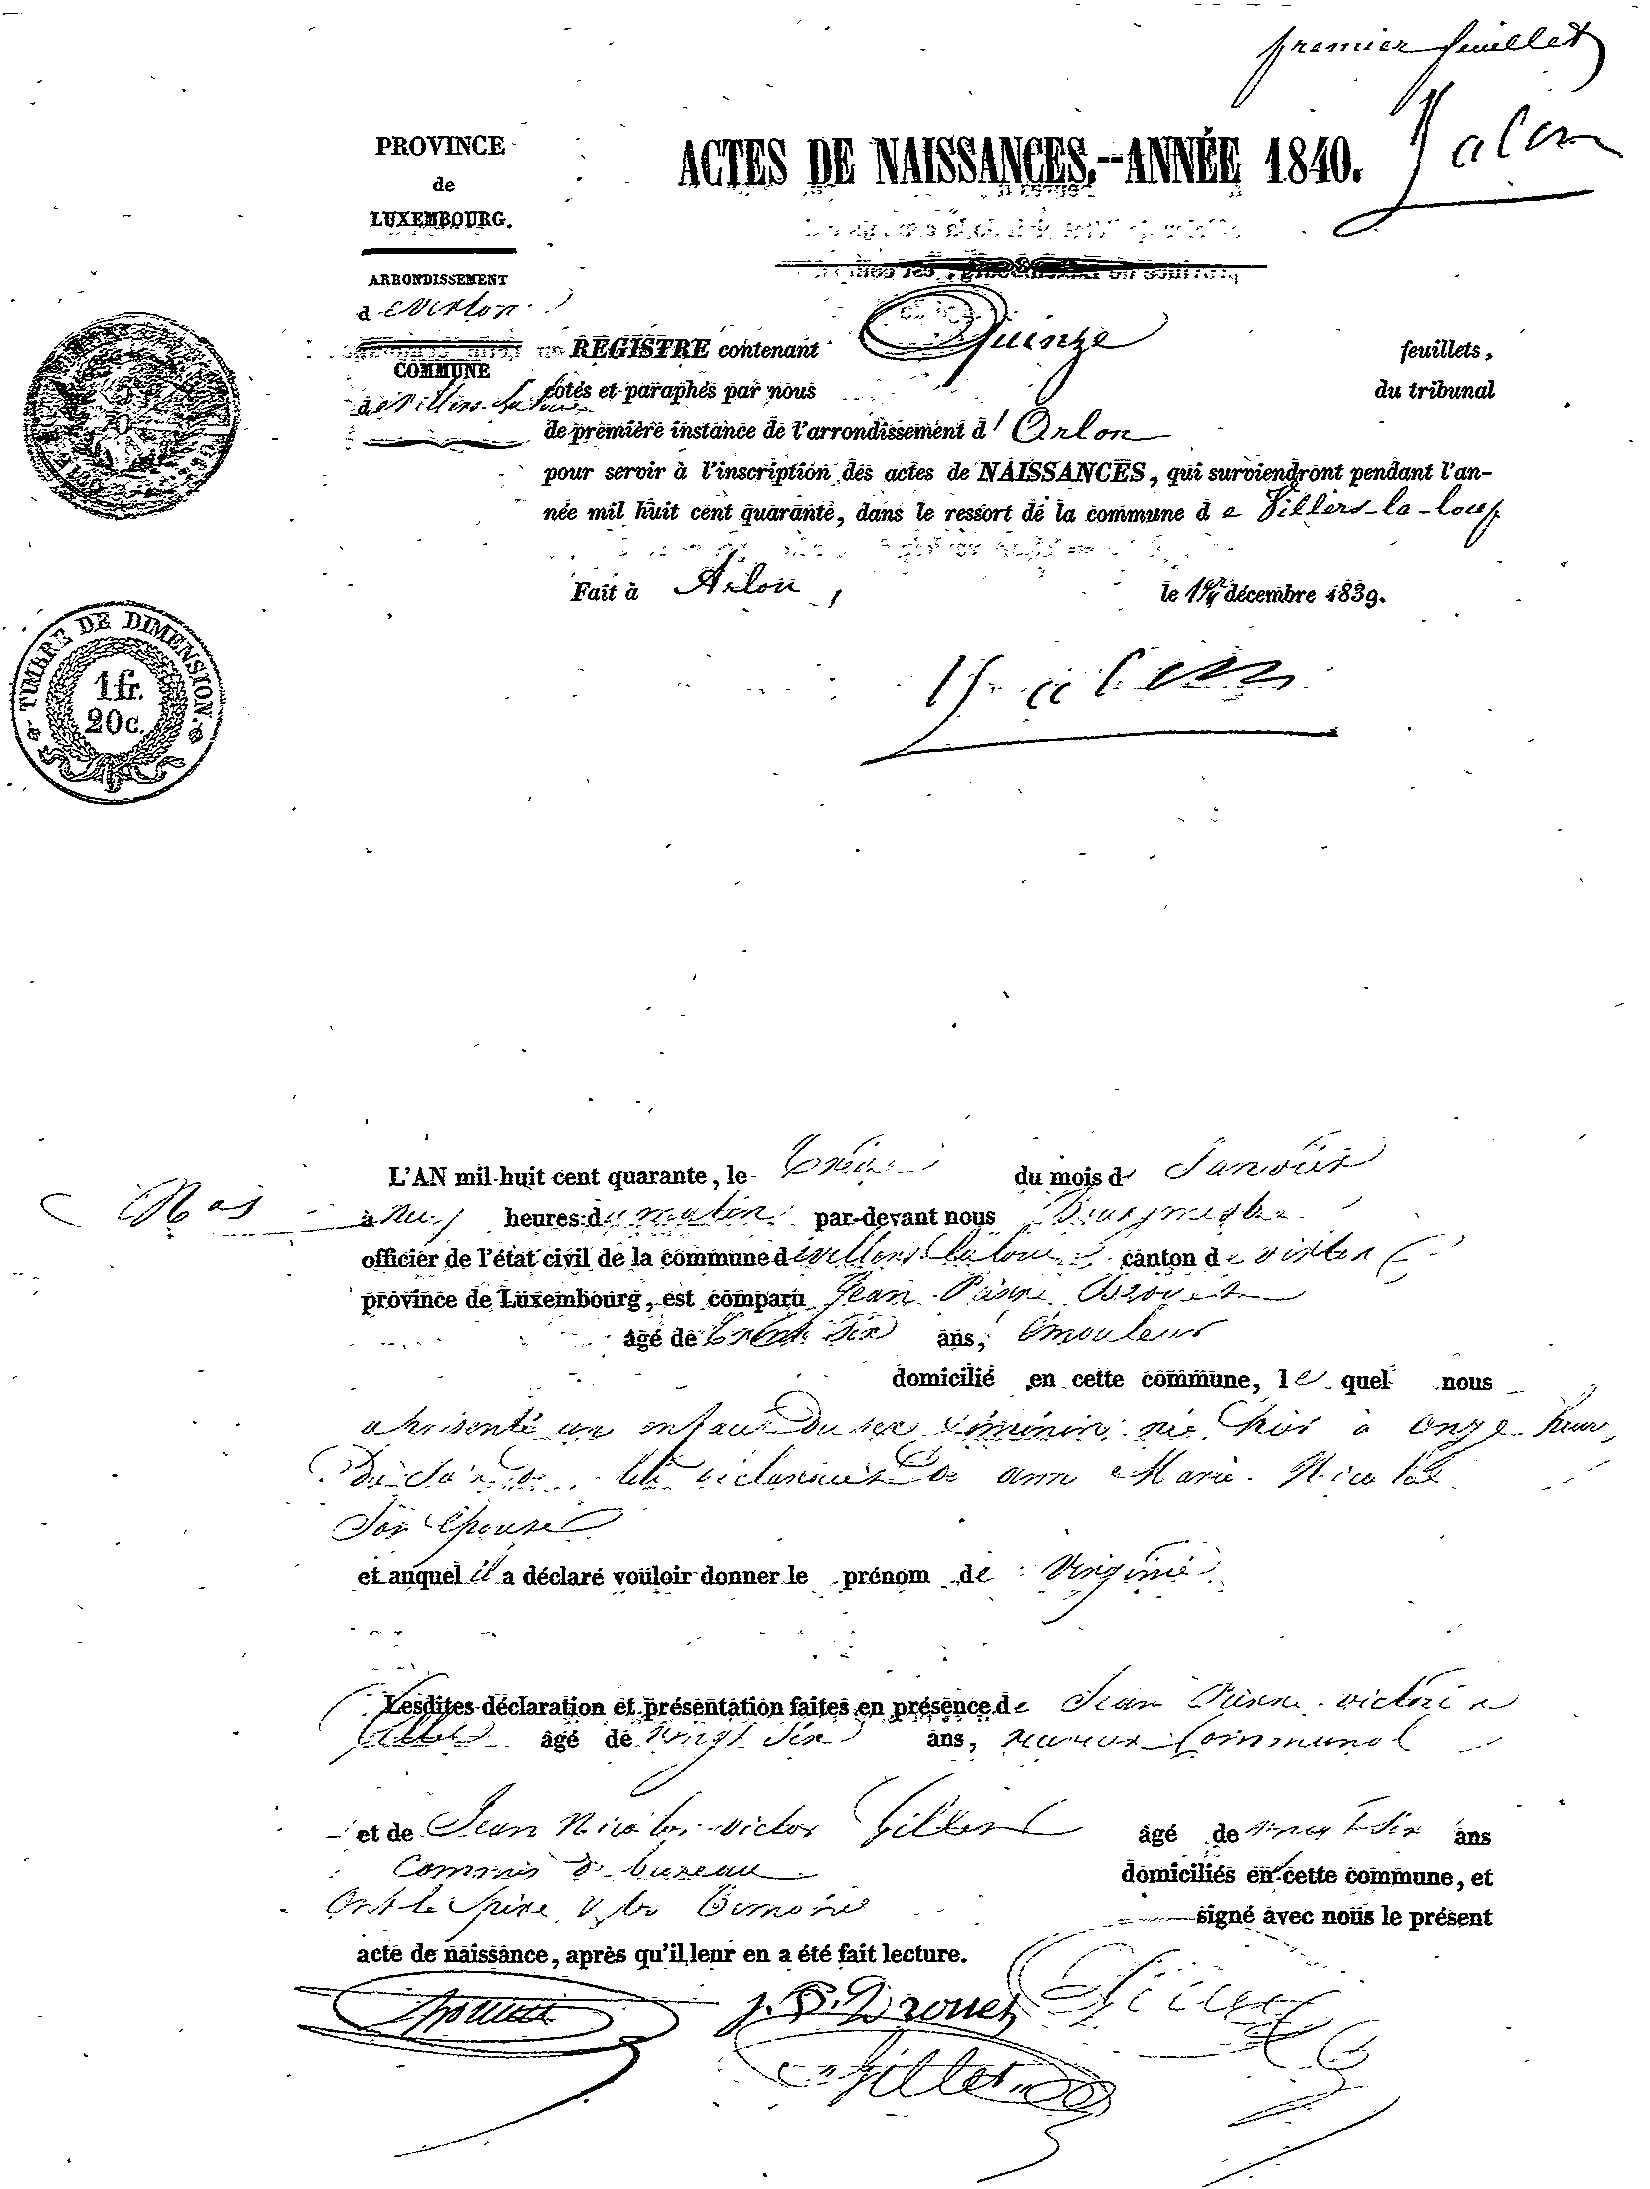 premier feuillet
PROVINCE
de
LUXEMBOURG.
ACTES DE NAISSANCES.--ANNÉE 1840.
ARRONDISSEMENT
de Virton
COMMUNE
de Villers-la-loue
REGISTRE contenant Quinze feuillets,
cotés et paraphés par nous du tribunal
de première instance de l'arrondissement d'Arlon
pour servir à l'inscription des actes de NAISSANCES, qui surviendront pendant l'an-
née mil huit cent quarante, dans le ressort de la commune de Villers-la-loue
Fait à Arlon, le décembre 1839.
TIMBRE DE DIMENSION.
1 fr.
20 c.
L'AN mil-huit cent quarante, le du mois de Janvier
à neuf heures du matin par-devant nous Bourgmestre
officier de l'état civil de la commune de villers la loue canton de virton
province de Luxembourg, est comparu Jean Pierre Drouet
âgé de trente six ans, émouleur
domicilié en cette commune, lequel nous
a présenté un enfant du sexe féminin née hier à onze heures
du soir de lui déclarant et de ann Marie Nicolas
son épouse
et auquel il a déclaré vouloir donner le prénom de Virginie
Lesdites déclaration et présentation faites en présence de Jean Pierre victor
Gillet âgé de vingt six ans, receveur Communal
et de Jean Nicolas victor Gillet âgé de vingt six ans
Commis de bureau domiciliés en cette commune, et
Ont le père et les témoins signé avec nous le présent
acte de naissance, après qu'il leur en a été fait lecture.
J. P. Drouet
Gillet